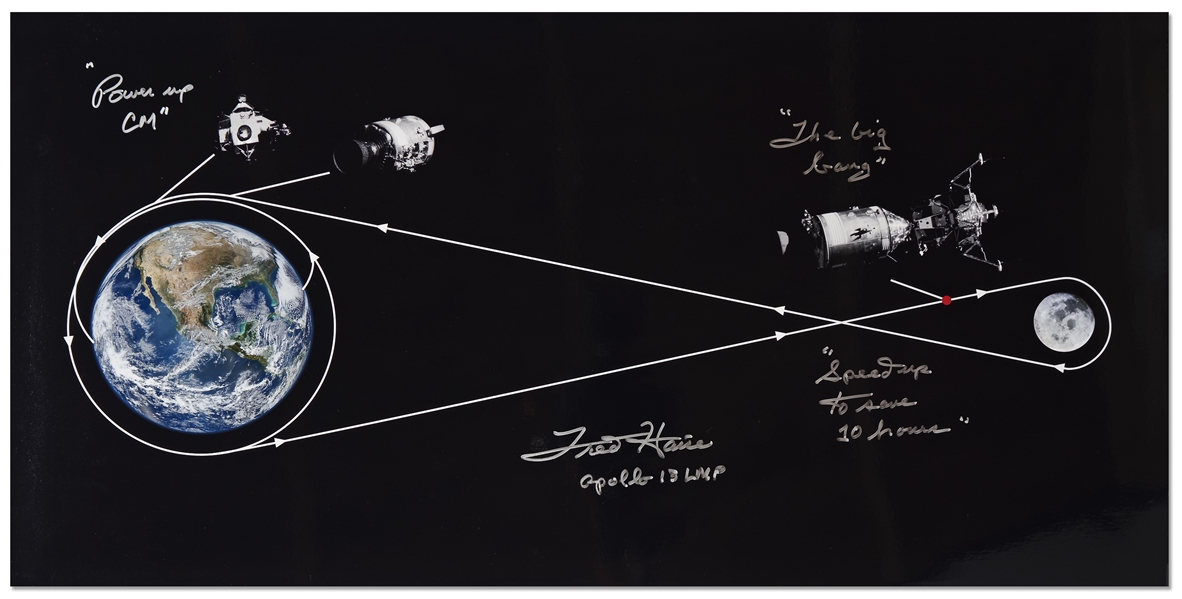 "Power up
CM"
"The big
bang"
"Speed up
to save
10 hours"
Fred Haise
Apollo 13 LMP